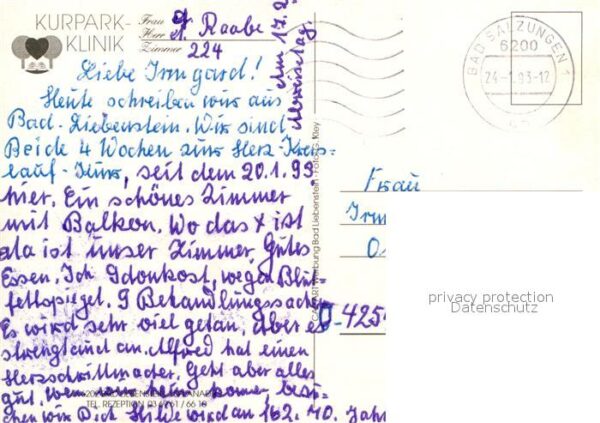 KURPARK-
KLINIK
Frau
Herr A. Raabe
Zimmer 224
Abreisetag: am 17.2.
BAD SALZUNGEN 1
6200
24-1.93-12
Liebe Irmgard!
Heute schreiben wir aus
Bad-Liebenstein. Wir sind
Beide 4 Wochen zur Herz-Kreis-
lauf-Kur, seit dem 20.1.93
hier. Ein schönes Zimmer
mit Balkon. Wo das x ist
da ist unser Zimmer. Gutes
Essen. Ich Idonkost, wegen Blut-
fettspiegel. 9 Behandlungssach
Es wird sehr viel getan, aber es
strengt und an. Alfred hat einen
Herzschrittmacher. Geht aber alles
gut. Wenn wir heim komen, besu-
chen wir Dich. Hilde wird am 16.2. 70. Jahr
TEL. REZEPTION 03 69 61 / 66 10
Werbung Bad Liebenstein · Foto: G.
Frau
Irm
O
D-425
privacy protection
Datenschutz